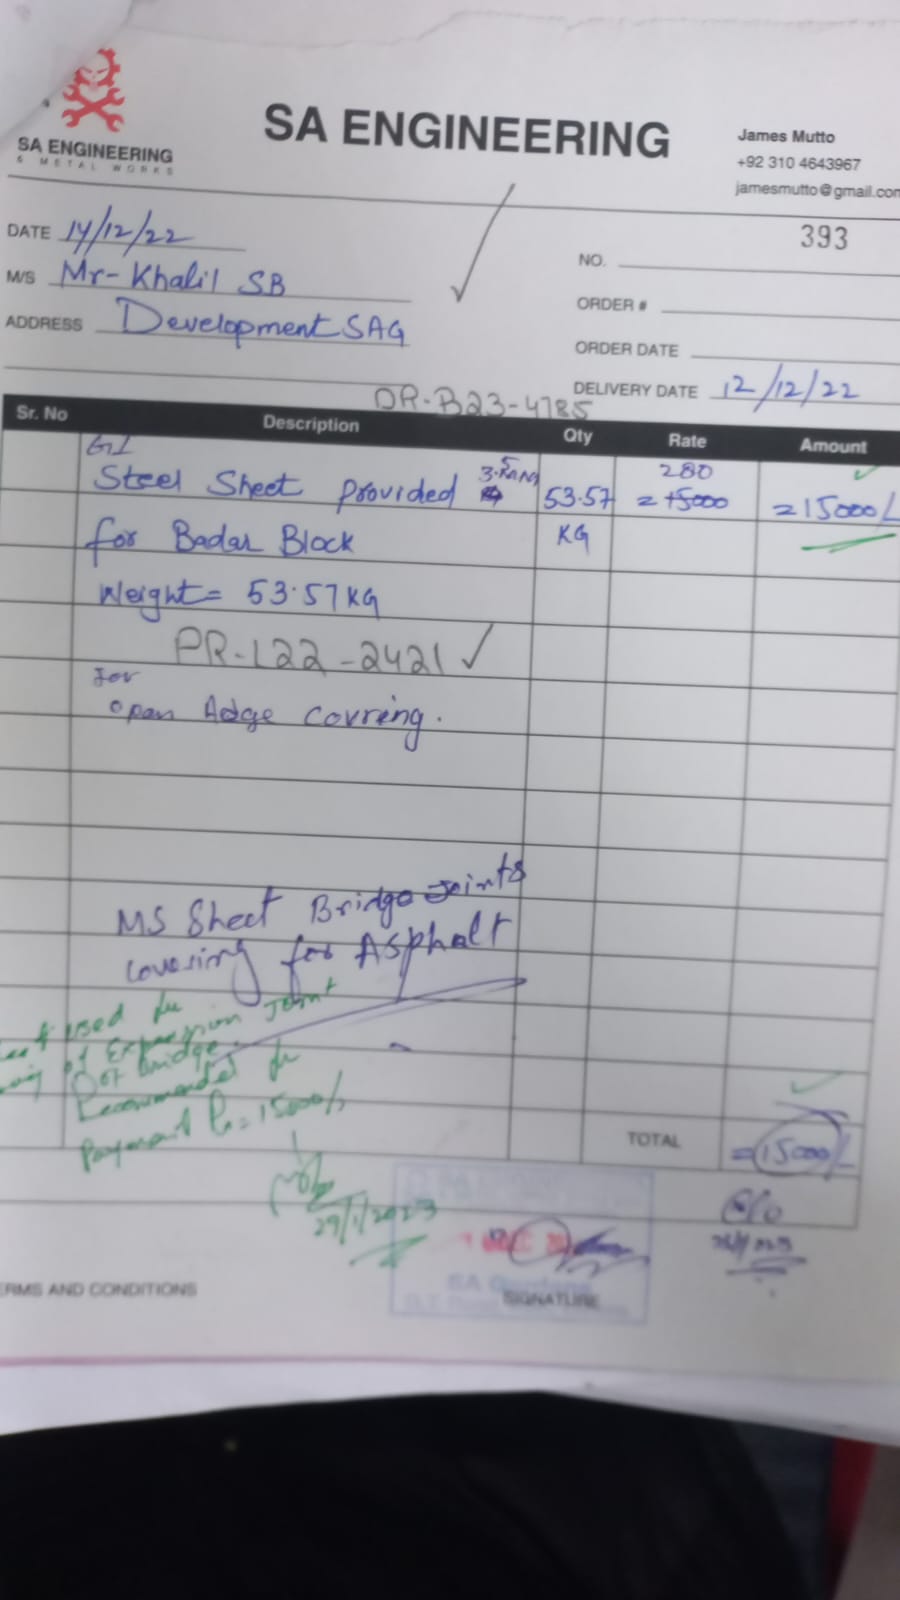 SA ENGINEERING
& METAL WORKS
SA ENGINEERING
James Mutto
+92 310 4643967
jamesmutto@gmail.com
393
DATE 14/12/22
NO.
M/S Mr- Khalil SB
ORDER #
ADDRESS Development SAG
ORDER DATE
DELIVERY DATE 12/12/22
DR-B23-4785
Sr. No Description Qty Rate Amount
Steel Sheet provided 53.57 280 =15000/
=15000
for Badar Block KG
Weight= 53.57KG
PR-L22-2421 ✓
for
open Adge covring.
MS Sheet Bridge Joints
covering for Asphalt
used for
of Expansion Joint
of Bridge.
Recommended for
Payment Rs=15000/
TOTAL =15000/
29/1/2023
SA Gardens
TERMS AND CONDITIONS
SIGNATURE